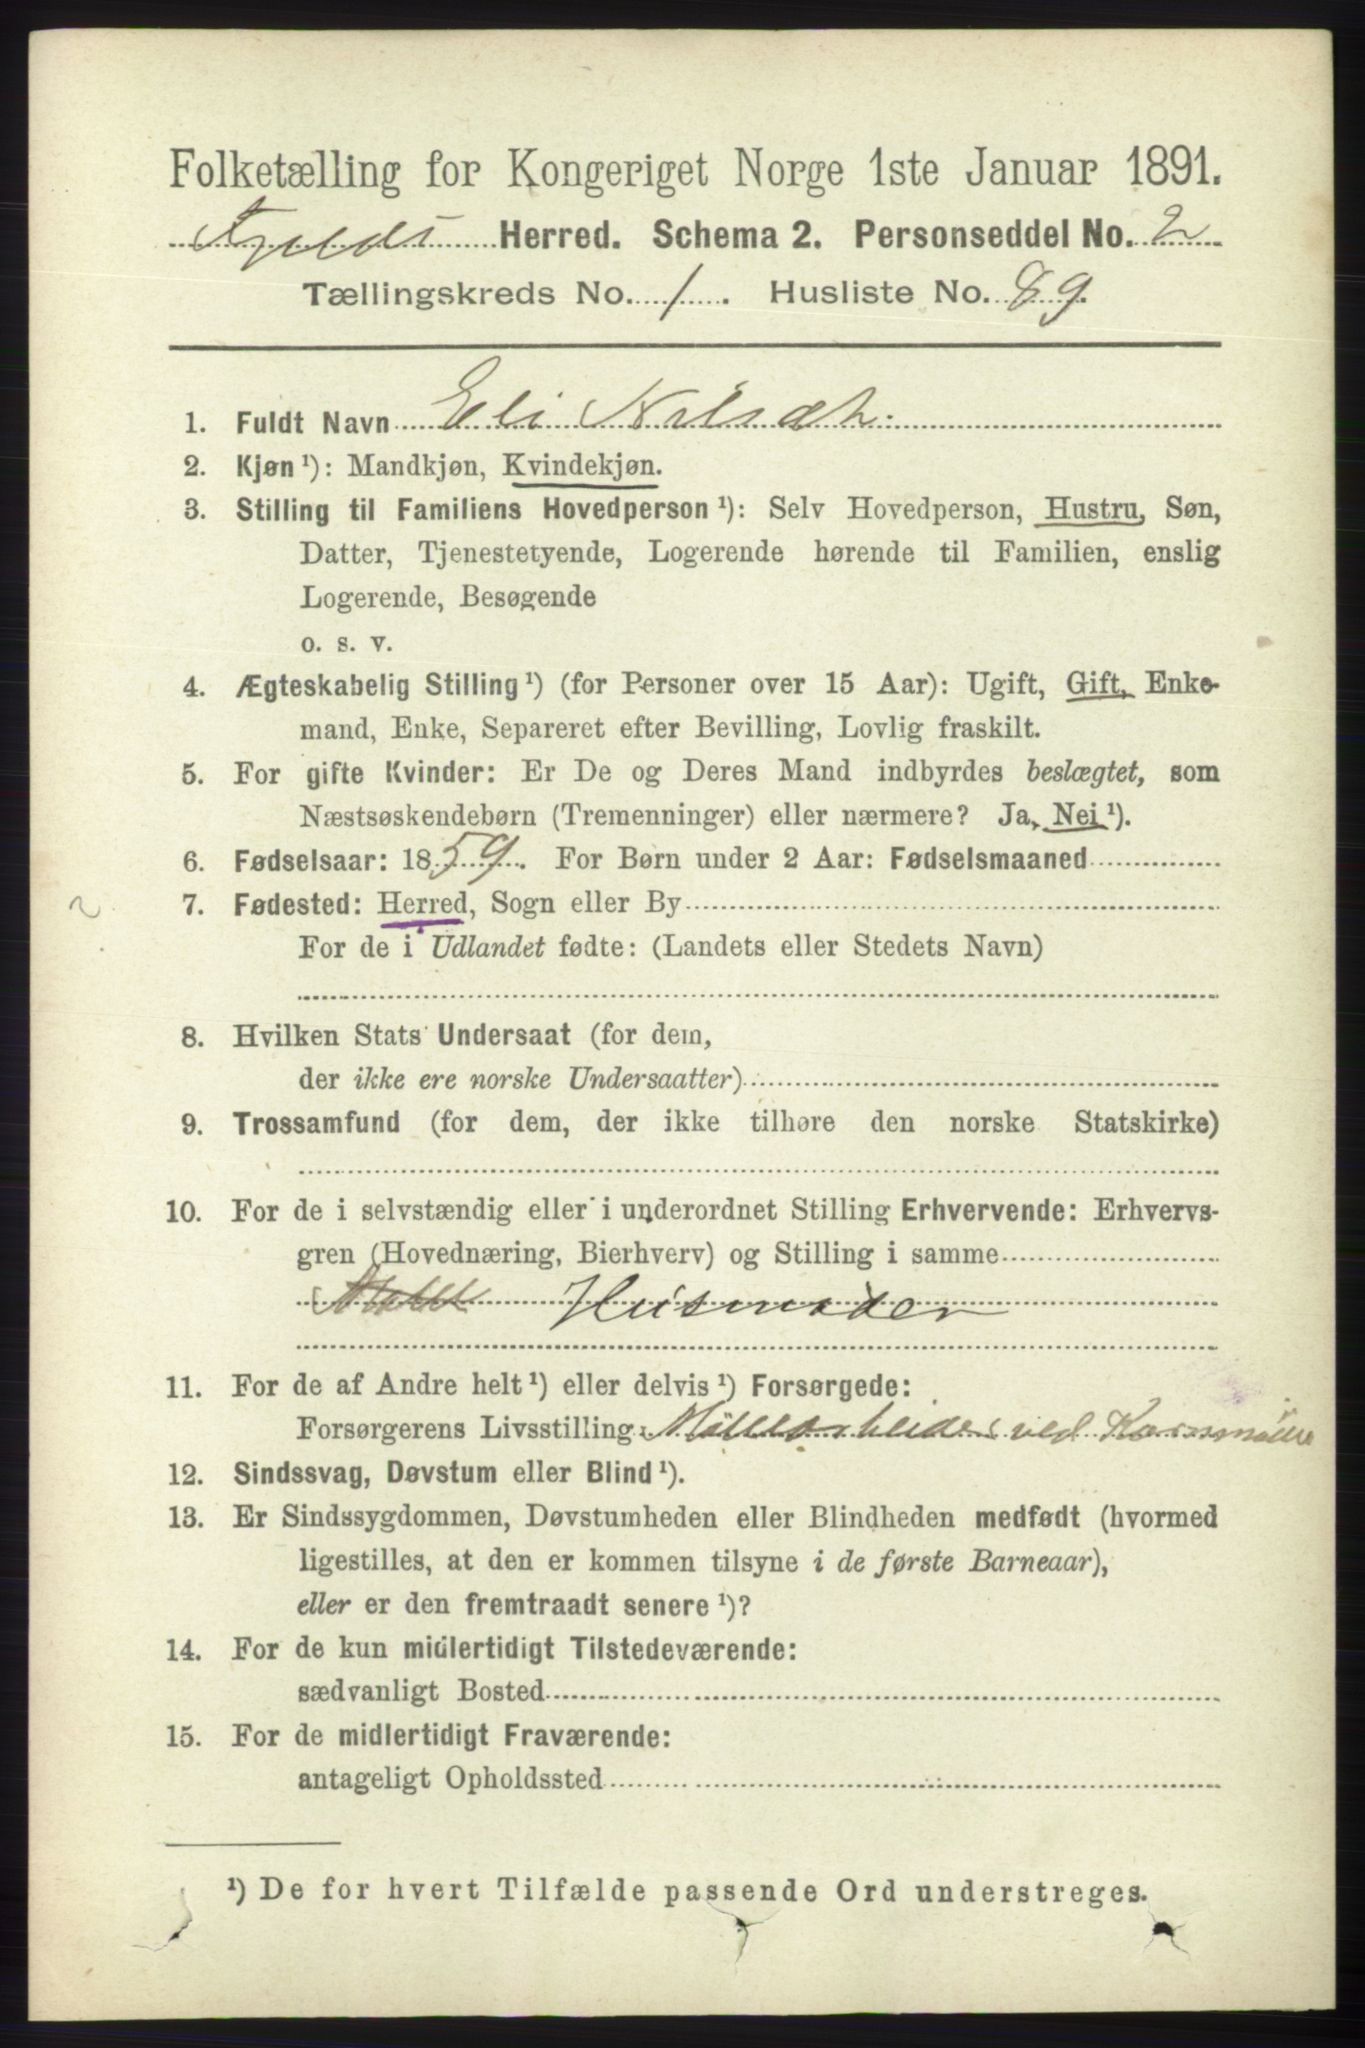 Folketælling for Kongeriget Norge 1ste Januar 1891.
Fjelds Herred. Schema 2. Personseddel No. 2
Tællingskreds No. 1. Husliste No. 89.
1. Fuldt Navn Eli Nilsdtr.
2. Kjøn ¹): Mandkjøn, Kvindekjøn.
3. Stilling til Familiens Hovedperson ¹): Selv Hovedperson, Hustru, Søn,
Datter, Tjenestetyende, Logerende hørende til Familien, enslig
Logerende, Besøgende
o. s. v.
4. Ægteskabelig Stilling ¹) (for Personer over 15 Aar): Ugift, Gift, Enke-
mand, Enke, Separeret efter Bevilling, Lovlig fraskilt.
5. For gifte Kvinder: Er De og Deres Mand indbyrdes beslægtet, som
Næstsøskendebørn (Tremenninger) eller nærmere? Ja, Nei ¹).
6. Fødselsaar: 1859. For Børn under 2 Aar: Fødselsmaaned
2
7. Fødested: Herred, Sogn eller By
For de i Udlandet fødte: (Landets eller Stedets Navn)
8. Hvilken Stats Undersaat (for dem,
der ikke ere norske Undersaatter)
9. Trossamfund (for dem, der ikke tilhøre den norske Statskirke)
10. For de i selvstændig eller i underordnet Stilling Erhvervende: Erhvervs-
gren (Hovednæring, Bierhverv) og Stilling i samme
Husmoder
11. For de af Andre helt ¹) eller delvis ¹) Forsørgede:
Forsørgerens Livsstilling: Møllearbeider ved Kornmølle
12. Sindssvag, Døvstum eller Blind ¹).
13. Er Sindssygdommen, Døvstumheden eller Blindheden medfødt (hvormed
ligestilles, at den er kommen tilsyne i de første Barneaar),
eller er den fremtraadt senere ¹)?
14. For de kun midlertidigt Tilstedeværende:
sædvanligt Bosted
15. For de midlertidigt Fraværende:
antageligt Opholdssted
¹) De for hvert Tilfælde passende Ord understreges.